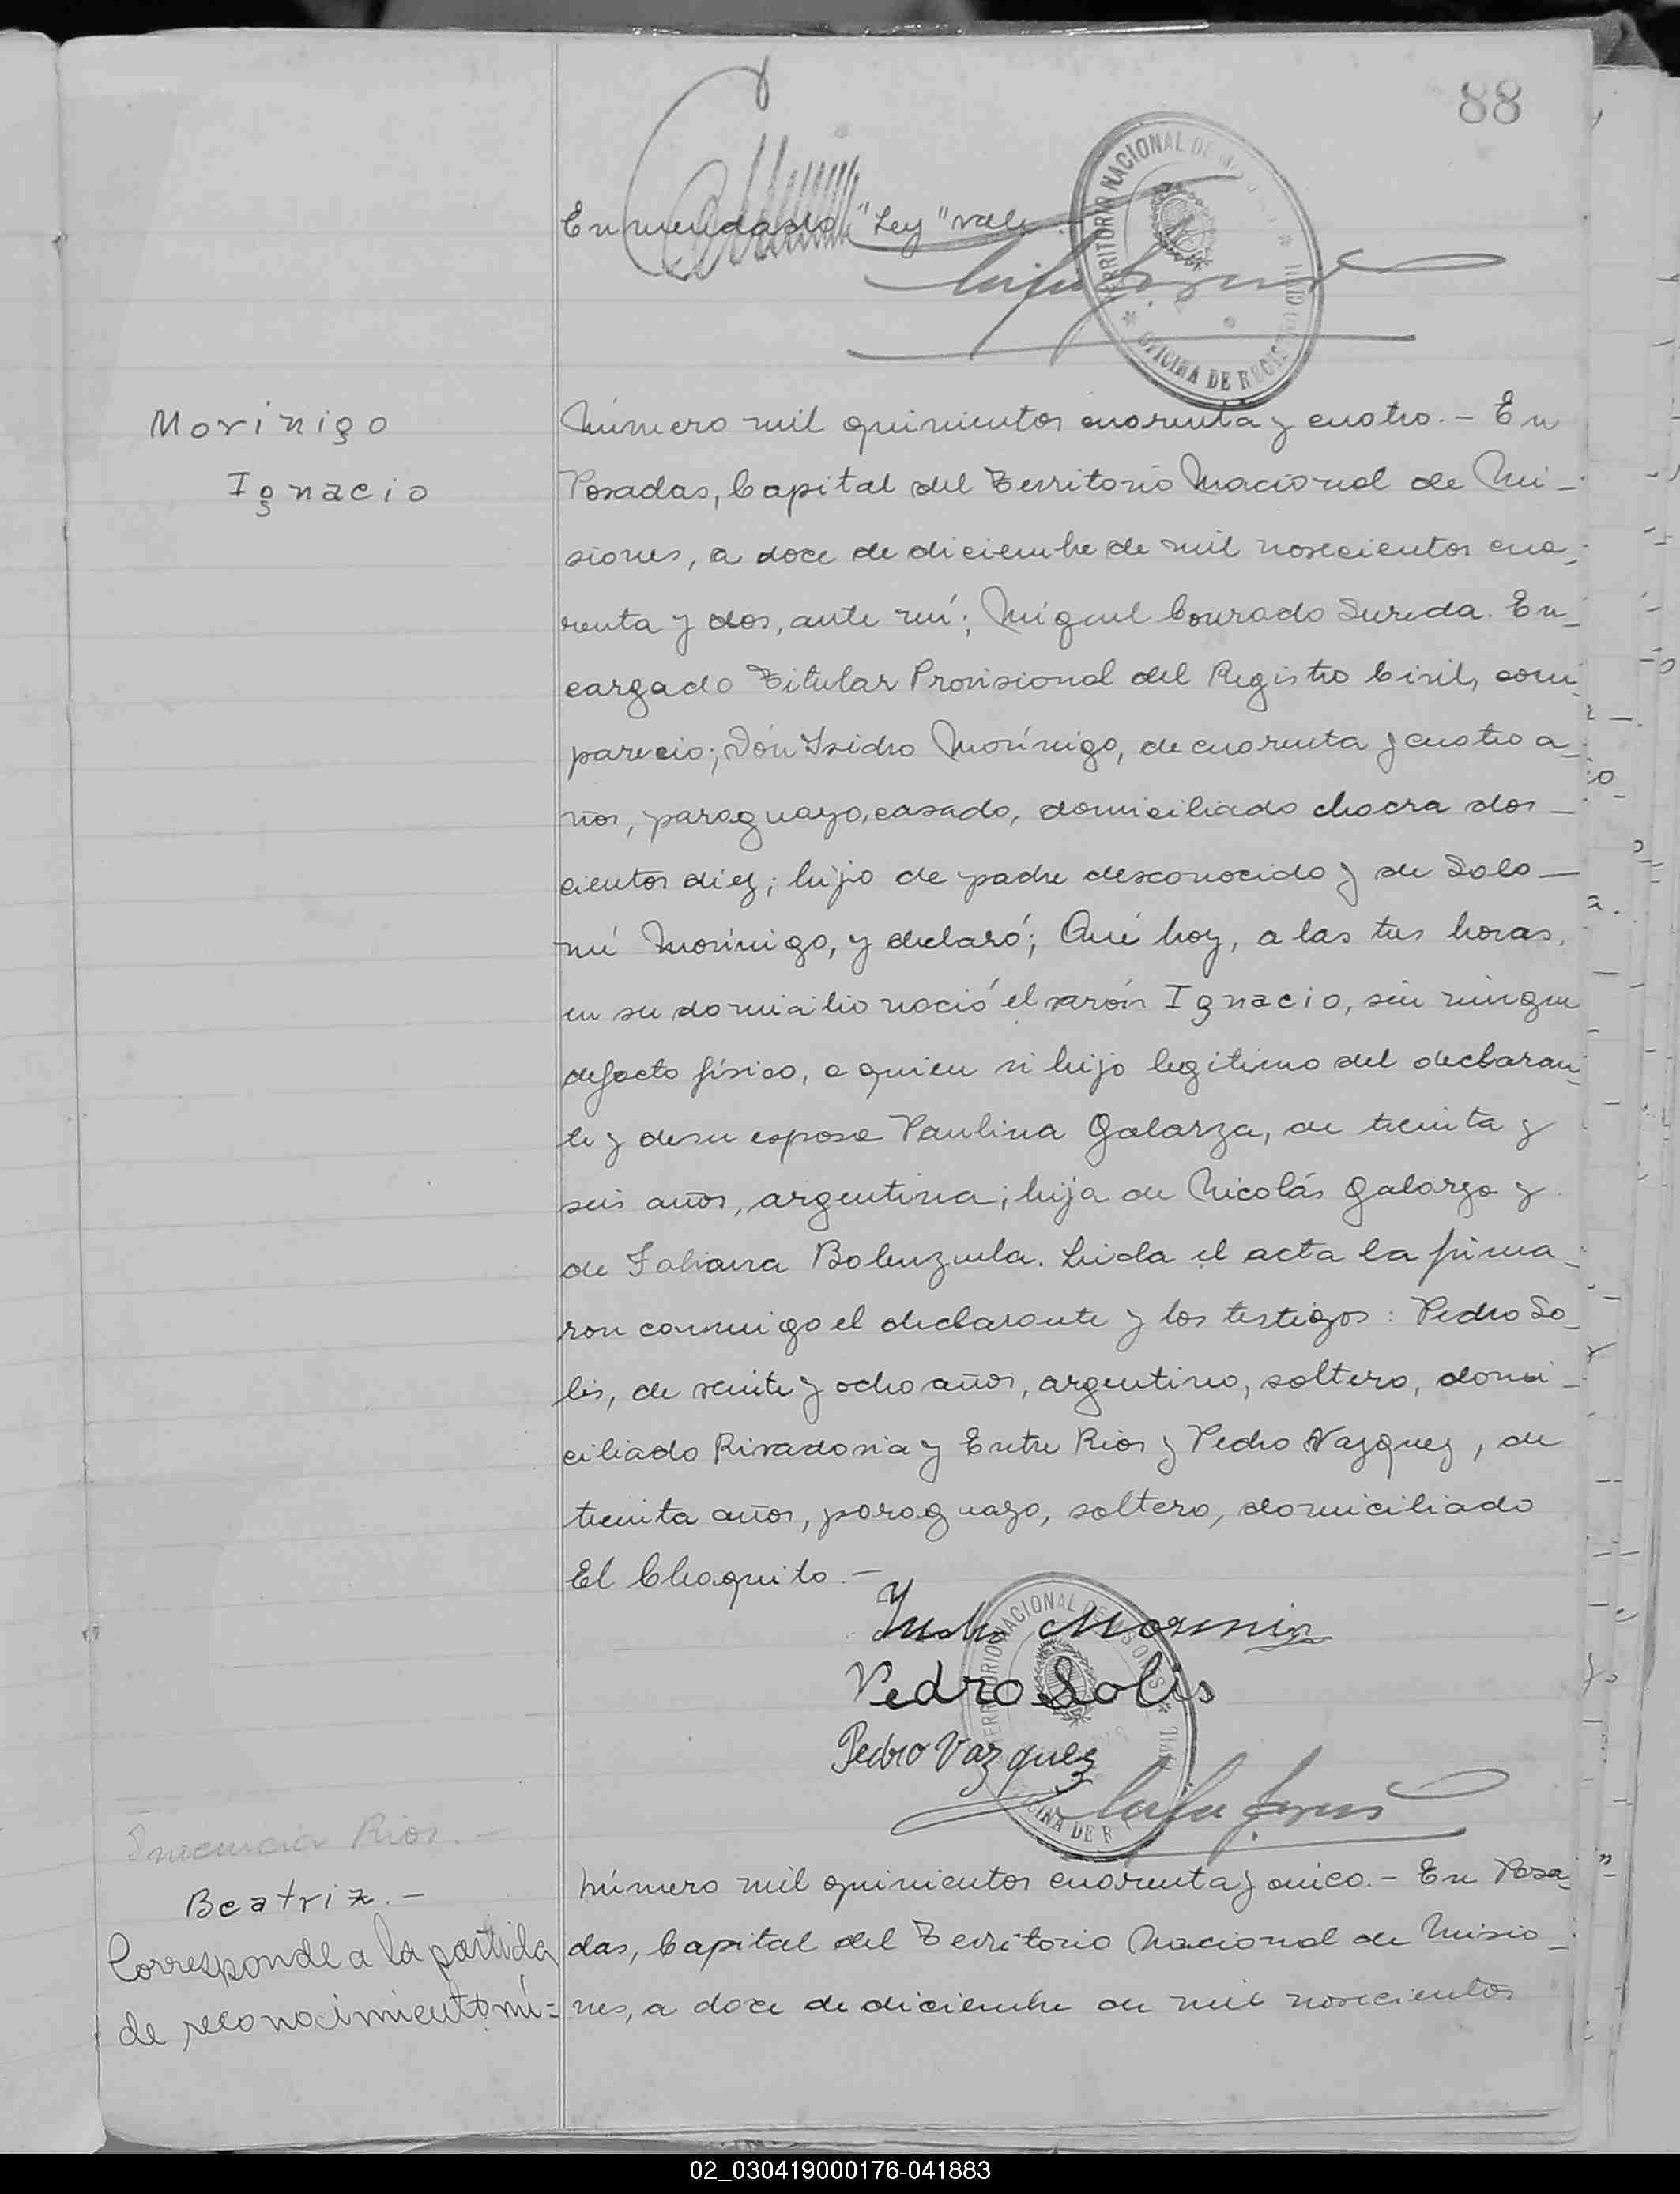 88
Enmendado "Ley" vale.
TERRITORIO NACIONAL DE
OFICINA DE REGISTRO CIVIL
Morínigo
Ignacio
Número mil quinientos cuarenta y cuatro.- En
Posadas, Capital del Territorio Nacional de Mi-
siones, a doce de diciembre de mil novecientos cua-
renta y dos, ante mí; Miguel Conrado Sureda. En-
cargado Titular Provisional del Registro Civil, com-
pareció; Dón Isidro Morínigo, de cuarenta y cuatro a-
ños, paraguayo, casado, domiciliado chacra dos-
cientos diez; hijo de padre desconocido y de Salo-
mé Morínigo, y declaró; Qué hoy, a las tres horas,
en su domicilio nació el varón Ignacio, sin ningun
defecto físico, a quien vi hijo legitimo del declaran-
te y de su esposa Paulina Galarza, de treinta y
seis años, argentina; hija de Nicolás Galarza y
de Fabiana Balenzuela. Leida el acta la firma-
ron conmigo el declarante y los testigos: Pedro So-
lis, de veinte y ocho años, argentino, soltero, domi-
ciliado Rivadavia y Entre Rios y Pedro Vazquez, de
treinta años, paraguayo, soltero, domiciliado
El Chaquito.-
Isidro Morinigo
Pedro Solis
Pedro Vazquez
Inocencia Rios.-
Beatriz.-
Corresponde a la partida
de reconocimiento mi=
Número mil quinientos cuarenta y cinco.- En Posa-
das, Capital del Territorio Nacional de Misio-
nes, a doce de diciembre de mil novecientos
02_030419000176-041883